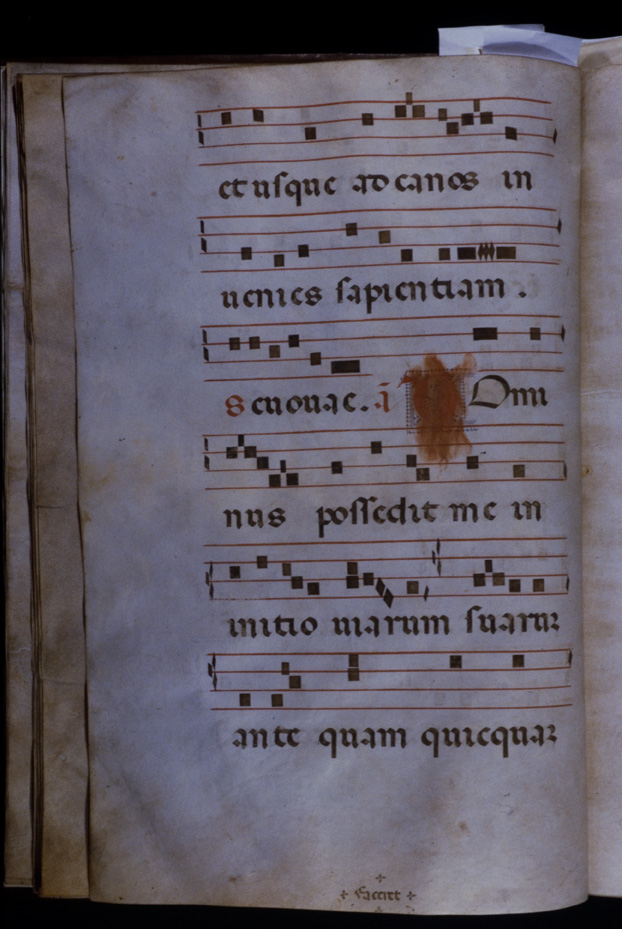 et usque ad canos in
uenies sapientiam.
seuouae. ā Domi
nus possedit me in
initio uiarum suaruꝝ
ante quam quicquaꝝ